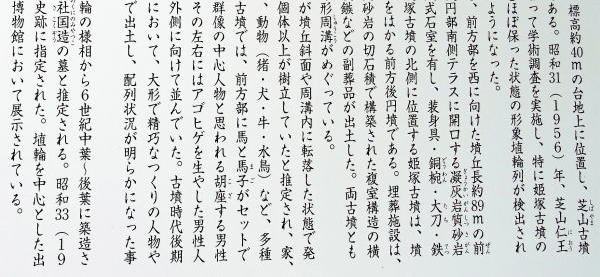 標高約40mの台地上に位置し、芝山古墳
ある。昭和31(1956)年、芝山仁王
って学術調査を実施し、特に姫塚古墳の
ほぼ保った状態の形象埴輪列が検出され
ようになった。
、前方部を西に向けた墳丘長約89mの前
円部南側テラスに開口する凝灰岩質砂岩
式石室を有し、装身具・銅椀・大刀・鉄
塚古墳の北側に位置する姫塚古墳は、墳
をはかる前方後円墳である。埋葬施設は、
砂岩の切石積で構築された複室構造の横
鏃などの副葬品が出土した。両古墳とも
形周溝がめぐっている。
が墳丘斜面や周溝内に転落した状態で発
個体以上が樹立していたと推定され、家、
、動物(猪・犬・牛・水鳥)など、多種
古墳では、前方部に馬と馬子がセットで
群像の中心人物と思われる胡座する男性
その左右にはアゴヒゲを生やした男性人
外側に向けて並んでいた。古墳時代後期
において、大形で精巧なつくりの人物や
で出土し、配列状況が明らかになった事
輪の様相から6世紀中葉~後葉に築造さ
社国造の墓と推定される。昭和33(19
史跡に指定された。埴輪を中心とした出
博物館において展示されている。